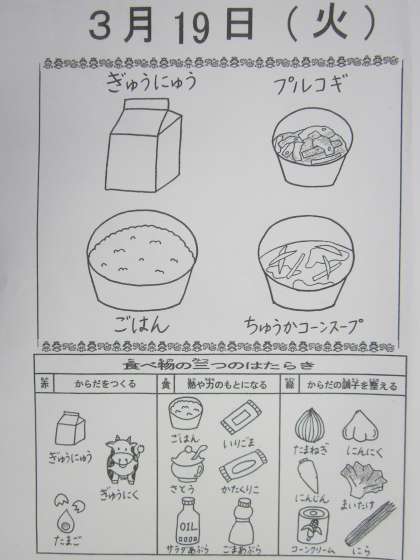 3月19日(火)
ぎゅうにゅう プルコギ
ごはん ちゅうかコーンスープ
食べ物の三つのはたらき
赤 からだをつくる 黄 熱や力のもとになる 緑 からだの調子を整える
ぎゅうにゅう ぎゅうにく たまご
ごはん いりごま
さとう かたくりこ
サラダあぶら ごまあぶら
OIL
たまねぎ にんにく
にんじん まいたけ
コーンクリーム にら